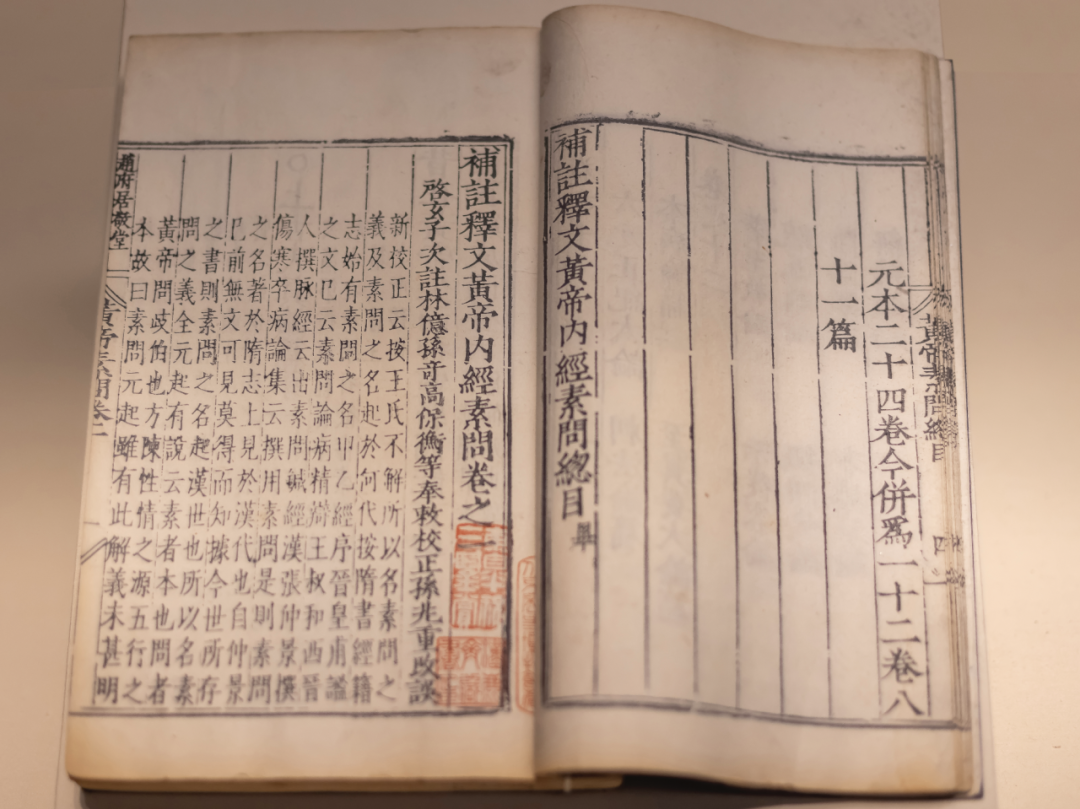 黃帝素問總目 四
元本二十四卷今併爲一十二卷八
十一篇
補註釋文黃帝內經素問總目 畢
補註釋文黃帝內經素問卷之一
啓玄子次註林億孫奇高保衡等奉敕校正孫兆重改誤
新校正云按王氏不解所以名素問之
義及素問之名起於何代按隋書經籍
志始有素問之名甲乙經序晉皇甫謐
之文已云素問論病精辯王叔和西晉
人撰脉經云出素問鍼經漢張仲景撰
傷寒卒病論集云撰用素問是則素問
之名著於隋志上見於漢代也自仲景
已前無文可見莫得而知據今世所存
之書則素問之名起漢世也所以名素
問之義全元起有說云素者本也問者
黃帝問歧伯也方陳性情之源五行之
本故曰素問元起雖有此解義未甚明
趙府居敬堂 黃帝素問卷一 一